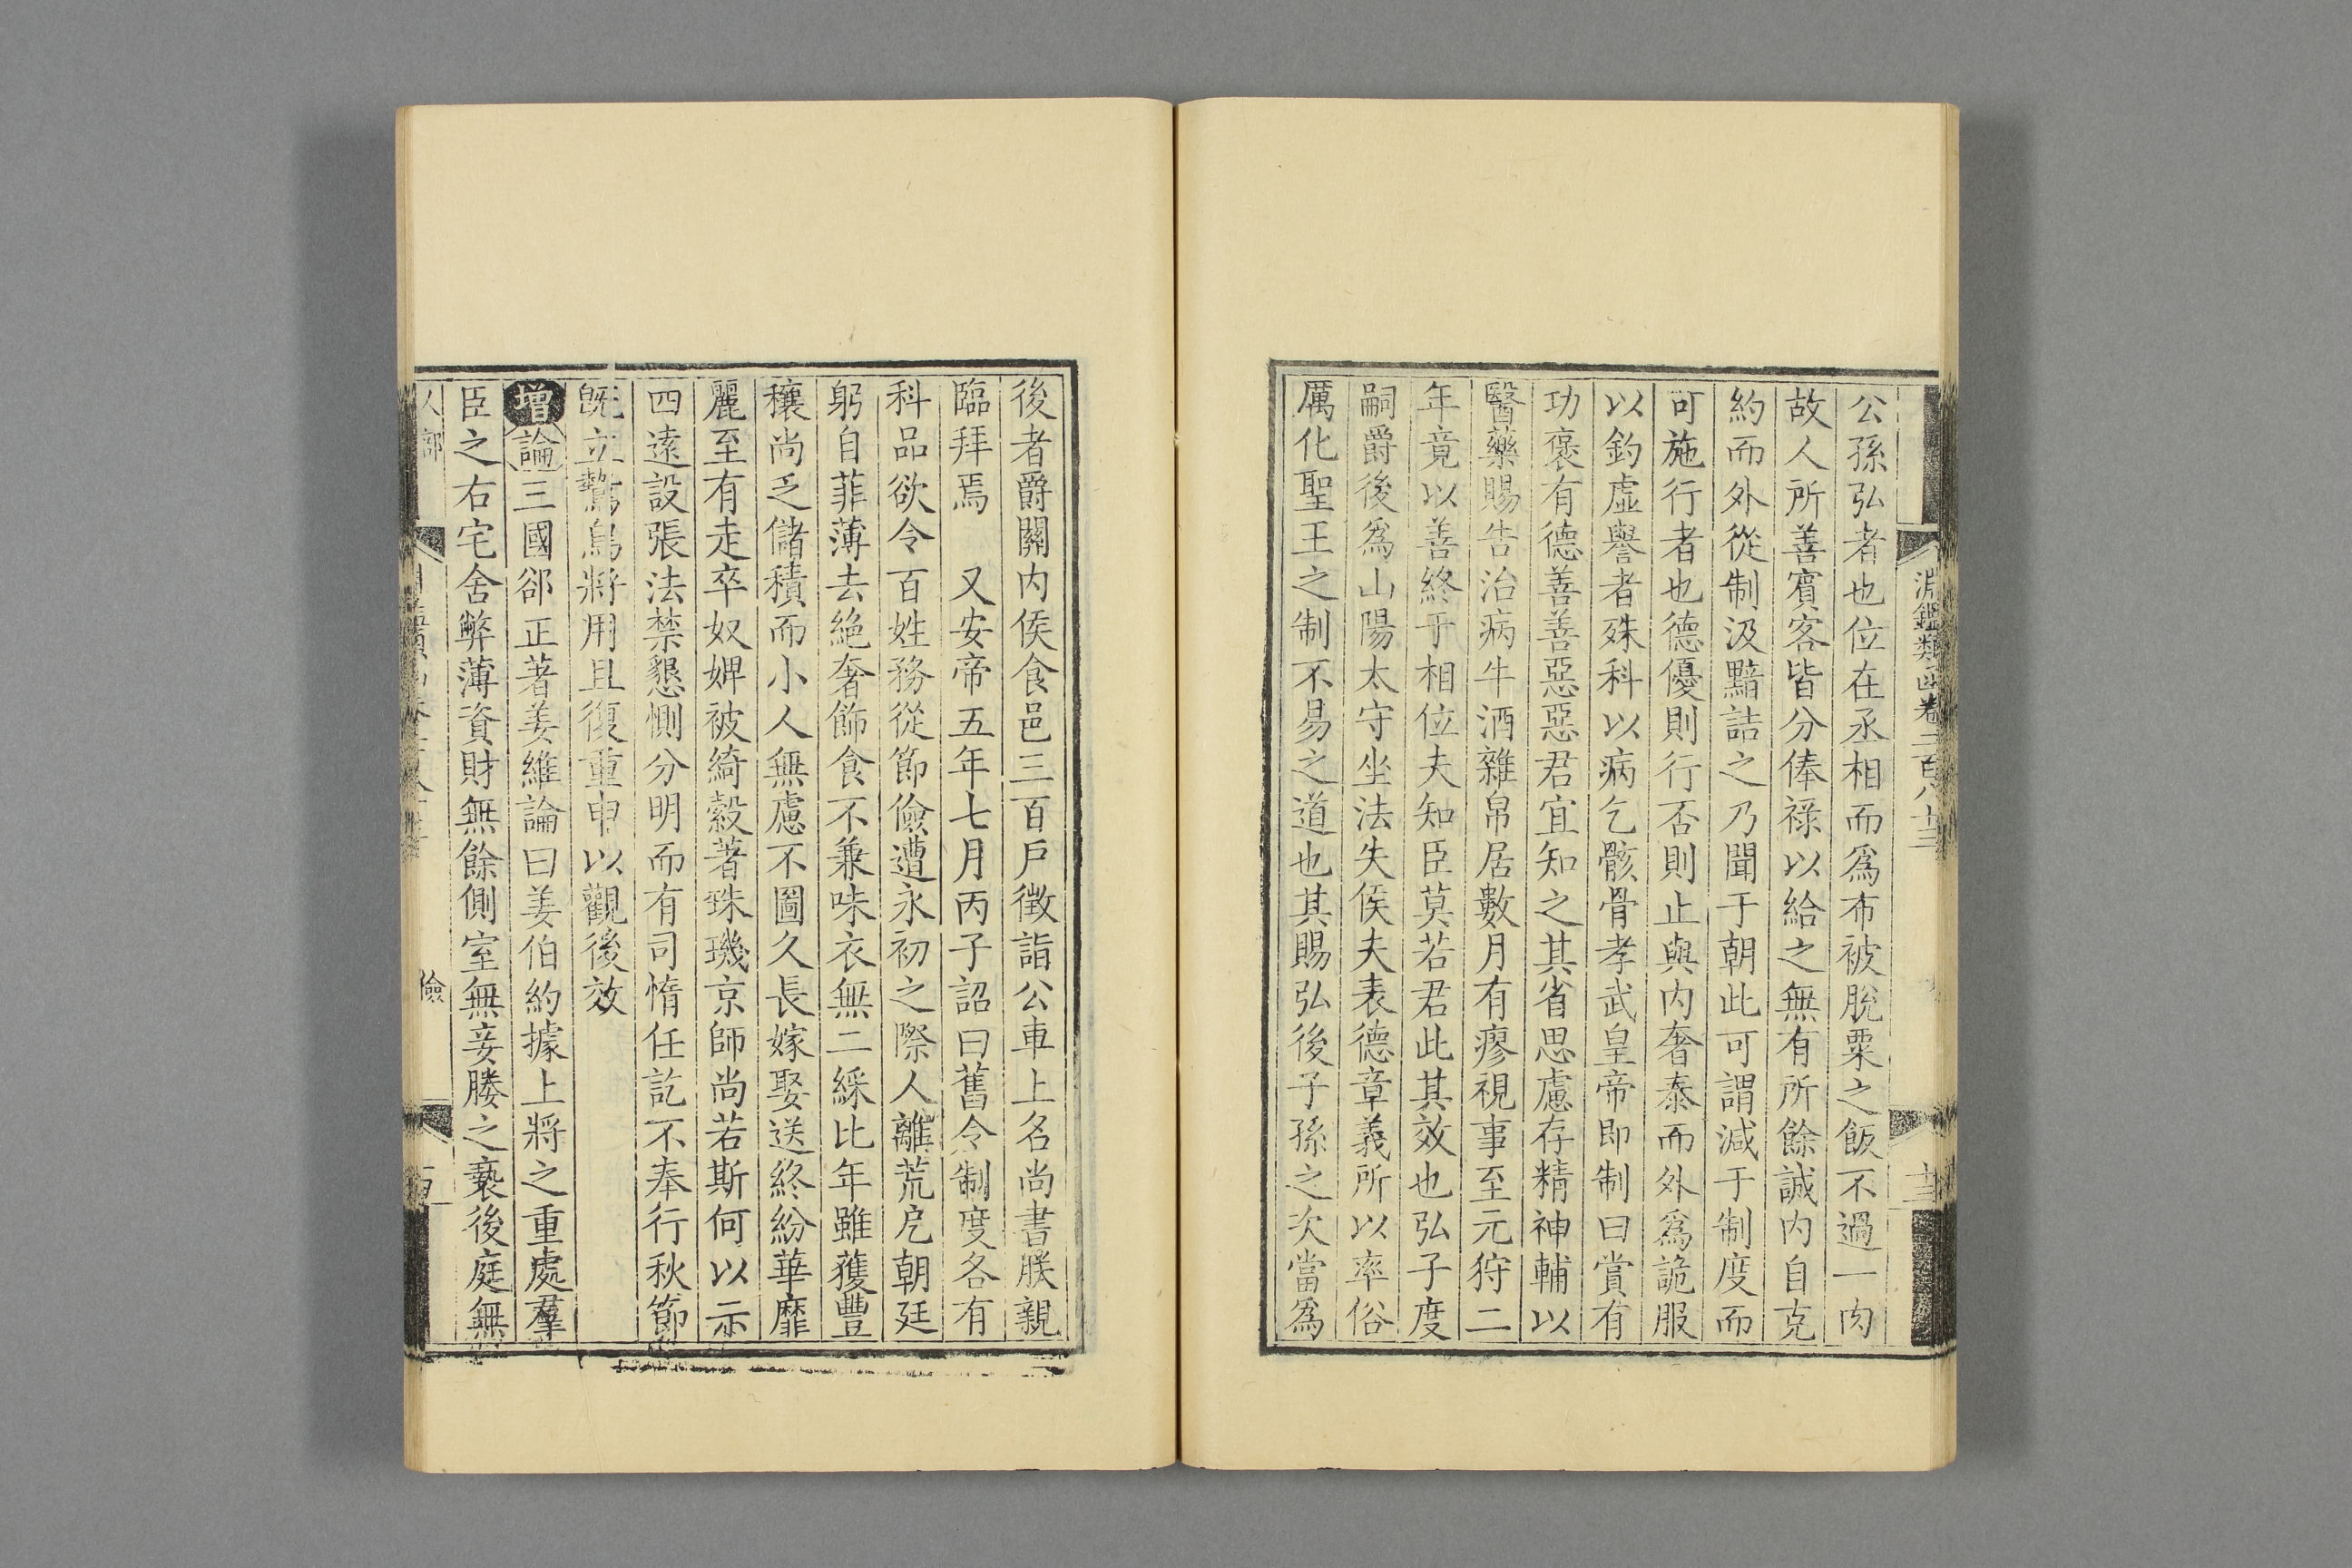 淵鑑類函卷二百八十三
公孫弘者也位在丞相而爲布被脫粟之飯不過一肉
故人所善賓客皆分俸祿以給之無有所餘誠内自克
約而外從制汲黯詰之乃聞于朝此可謂減于制度而
可施行者也德優則行否則止與内奢泰而外爲詭服
以釣虛譽者殊科以病乞骸骨孝武皇帝即制曰賞有
功褒有德善善惡惡君宜知之其省思慮存精神輔以
醫藥賜告治病牛酒雜帛居數月有瘳視事至元狩二
年竟以善終于相位夫知臣莫若君此其效也弘子度
嗣爵後爲山陽太守坐法失侯夫表德章義所以率俗
厲化聖王之制不易之道也其賜弘後子孫之次當爲
後者爵關内侯食邑三百戶徵詣公車上名尚書朕親
臨拜焉　又安帝五年七月丙子詔曰舊令制度各有
科品欲令百姓務從節儉遭永初之際人離荒戹朝廷
躬自菲薄去絶奢飾食不兼味衣無二綵比年雖獲豐
穰尚乏儲積而小人無慮不圖久長嫁娶送終紛華靡
麗至有走卒奴婢被綺縠著珠璣京師尚若斯何以示
四遠設張法禁懇惻分明而有司惰任訖不奉行秋節
旣立鷙鳥將用且復重申以觀後效
增論三國郤正著姜維論曰姜伯約據上將之重處羣
臣之右宅舍弊薄資財無餘側室無妾媵之褻後庭無
人部
儉